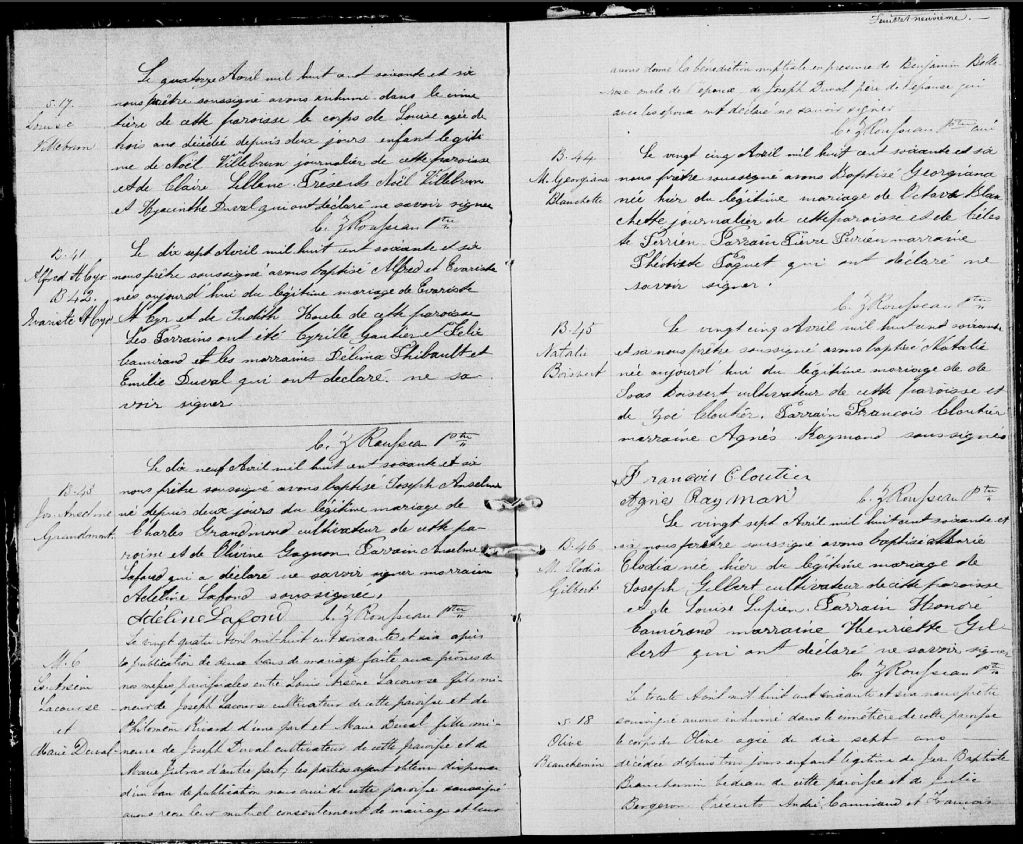 S. 17.
Louise
Villebrun
Le quatorze Avril mil huit cent soixante et six
nous prêtre soussigné avons inhumé dans le cime
tière de cette paroisse le corps de Louise agée de
trois ans décédée depuis deux jours enfant legiti
me de Noël Villebrun journalier de cette paroisse
et de Claire Leblanc. Présents Noël Villebrun
et Hyacinthe Duval qui ont déclaré ne savoir signer
C. Z Rousseau Ptre
B. 41
Alfred St Cyr
B 42.
Evariste St Cyr
Le dix sept Avril mil huit cent soixante et six
nous prêtre soussigné avons baptisé Alfred et Evariste
nés aujourd'hui du légitime mariage de Evariste
St Cyr et de Judith Houle de cette paroisse
Les Parrains ont été Cyrille Gautier et Felix
Camirand et les marraines Délima Thibault et
Emilie Duval qui ont declaré ne sa
voir signer
C. Z Rousseau Ptre
B. 43
Jos Anselme
Grandmont
Le dix neuf Avril mil huit cent soixante et six
nous prêtre soussigné avons baptisé Joseph Anselme
né depuis deux jours du légitime mariage de
Charles Grandmond cultivateur de cette pa-
roisse et de Olivine Gagnon Parrain Anselme
Lafond qui a déclaré ne savoir signer marraine
Adéline Lafond soussignée.
Adéline Lafond C. Z Rousseau Ptre
M. 6
Ls Arsène
Lacourse
et
Marie Duval
Le vingt quatre Avril mil huit cent soixante et six après
la publication de deux bans de mariage faite aux prônes de
nos messes paroissiales entre Louis Arsène Lacourse fils mi
neur de Joseph Lacourse cultivateur de cette paroisse et de
Philomène Rivard d'une part et Marie Duval fille mi
neure de Joseph Duval cultivateur de cette paroisse et de
Marie Jutras d'autre part; les parties ayant obtenu dispense
d'un ban de publication nous curé de cette paroisse soussigné
avons reçu leur mutuel consentement de mariage et leur
Feuillet neuvième.
avons donné la bénédiction nuptiale en presence de Benjamin
de l'epoux de Joseph Duval père de l'épouse qui
avec les epoux ont déclaré ne savoir signer
C. Z Rousseau Ptre curé
B. 44
M. Georgiana
Blanchette
Le vingt cinq Avril mil huit cent soixante et six
nous prêtre soussigné avons Baptisé Georgiana
née hier du légitime mariage de Octave Blan
chette journalier de cette paroisse et de Céles
te Terrien. Parrain Pierre Terrien marraine
Théotiste Paquet qui ont déclaré ne
savoir signer.
C. Z Rousseau Ptre
B. 45
Natalie
Boisvert
Le vingt cinq Avril mil huit cent soixante
et six nous prêtre soussigné avons baptisé Natalie
née aujourd hui du legitime mariage de de
Boisvert cultivateur de cette paroisse et
de Zoé Cloutier. Parrain François Cloutier
marraine Agnès Raymond soussignés
Francois Cloutier
Agnès Raymand C. Z Rousseau Ptre
B. 46
M. Elodia
Gilbert
Le vingt sept Avril mil huit cent soixante et
six nous prêtre soussigné avons baptisé Marie
Elodia née hier du légitime mariage de
Joseph Gilbert cultivateur de cette paroisse
et de Louise Lupien. Parrain Honoré
Camirand marraine Henriette Gil-
bert qui ont déclaré ne savoir signer
C. Z Rousseau Ptre
S. 18
Olive
Beauchemin
Le trente Avril mil huit cent soixante et six nous prêtre
soussigné avons inhumé dans le cimétière de cette paroisse
le corps de Olive agée de dix sept ans
décédée depuis trois jours enfant légitime de Jean Baptiste
Beauchemin bedeau de cette paroisse et de
Bergeron Présents André Camirand et François